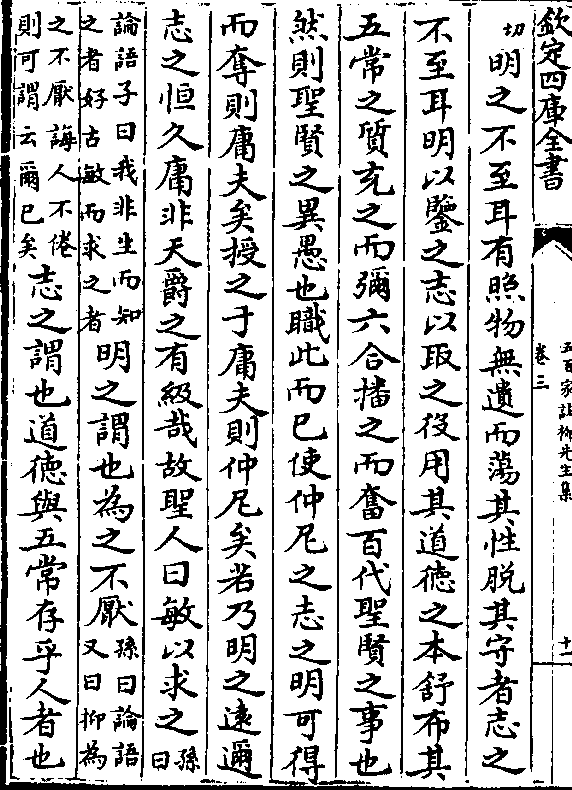 欽定四庫全書
五百家註柳先生集
卷三
十一
切明之不至耳有照物無遺而蕩其性脱其守者志之
不至耳明以鑒之志以取之役用其道德之本舒布其
五常之質充之而彌六合播之而奮百代聖賢之事也
然則聖賢之異愚也職此而已使仲尼之志之明可得
而奪則庸夫矣授之于庸夫則仲尼矣若乃明之逺邇
志之恒久庸非天爵之有級哉故聖人曰敏以求之孫曰
論語子曰我非生而知之者好古敏而求之者明之謂也為之不厭孫曰論語又曰抑為
之不厭誨人不倦則可謂云爾已矣志之謂也道德與五常存乎人者也